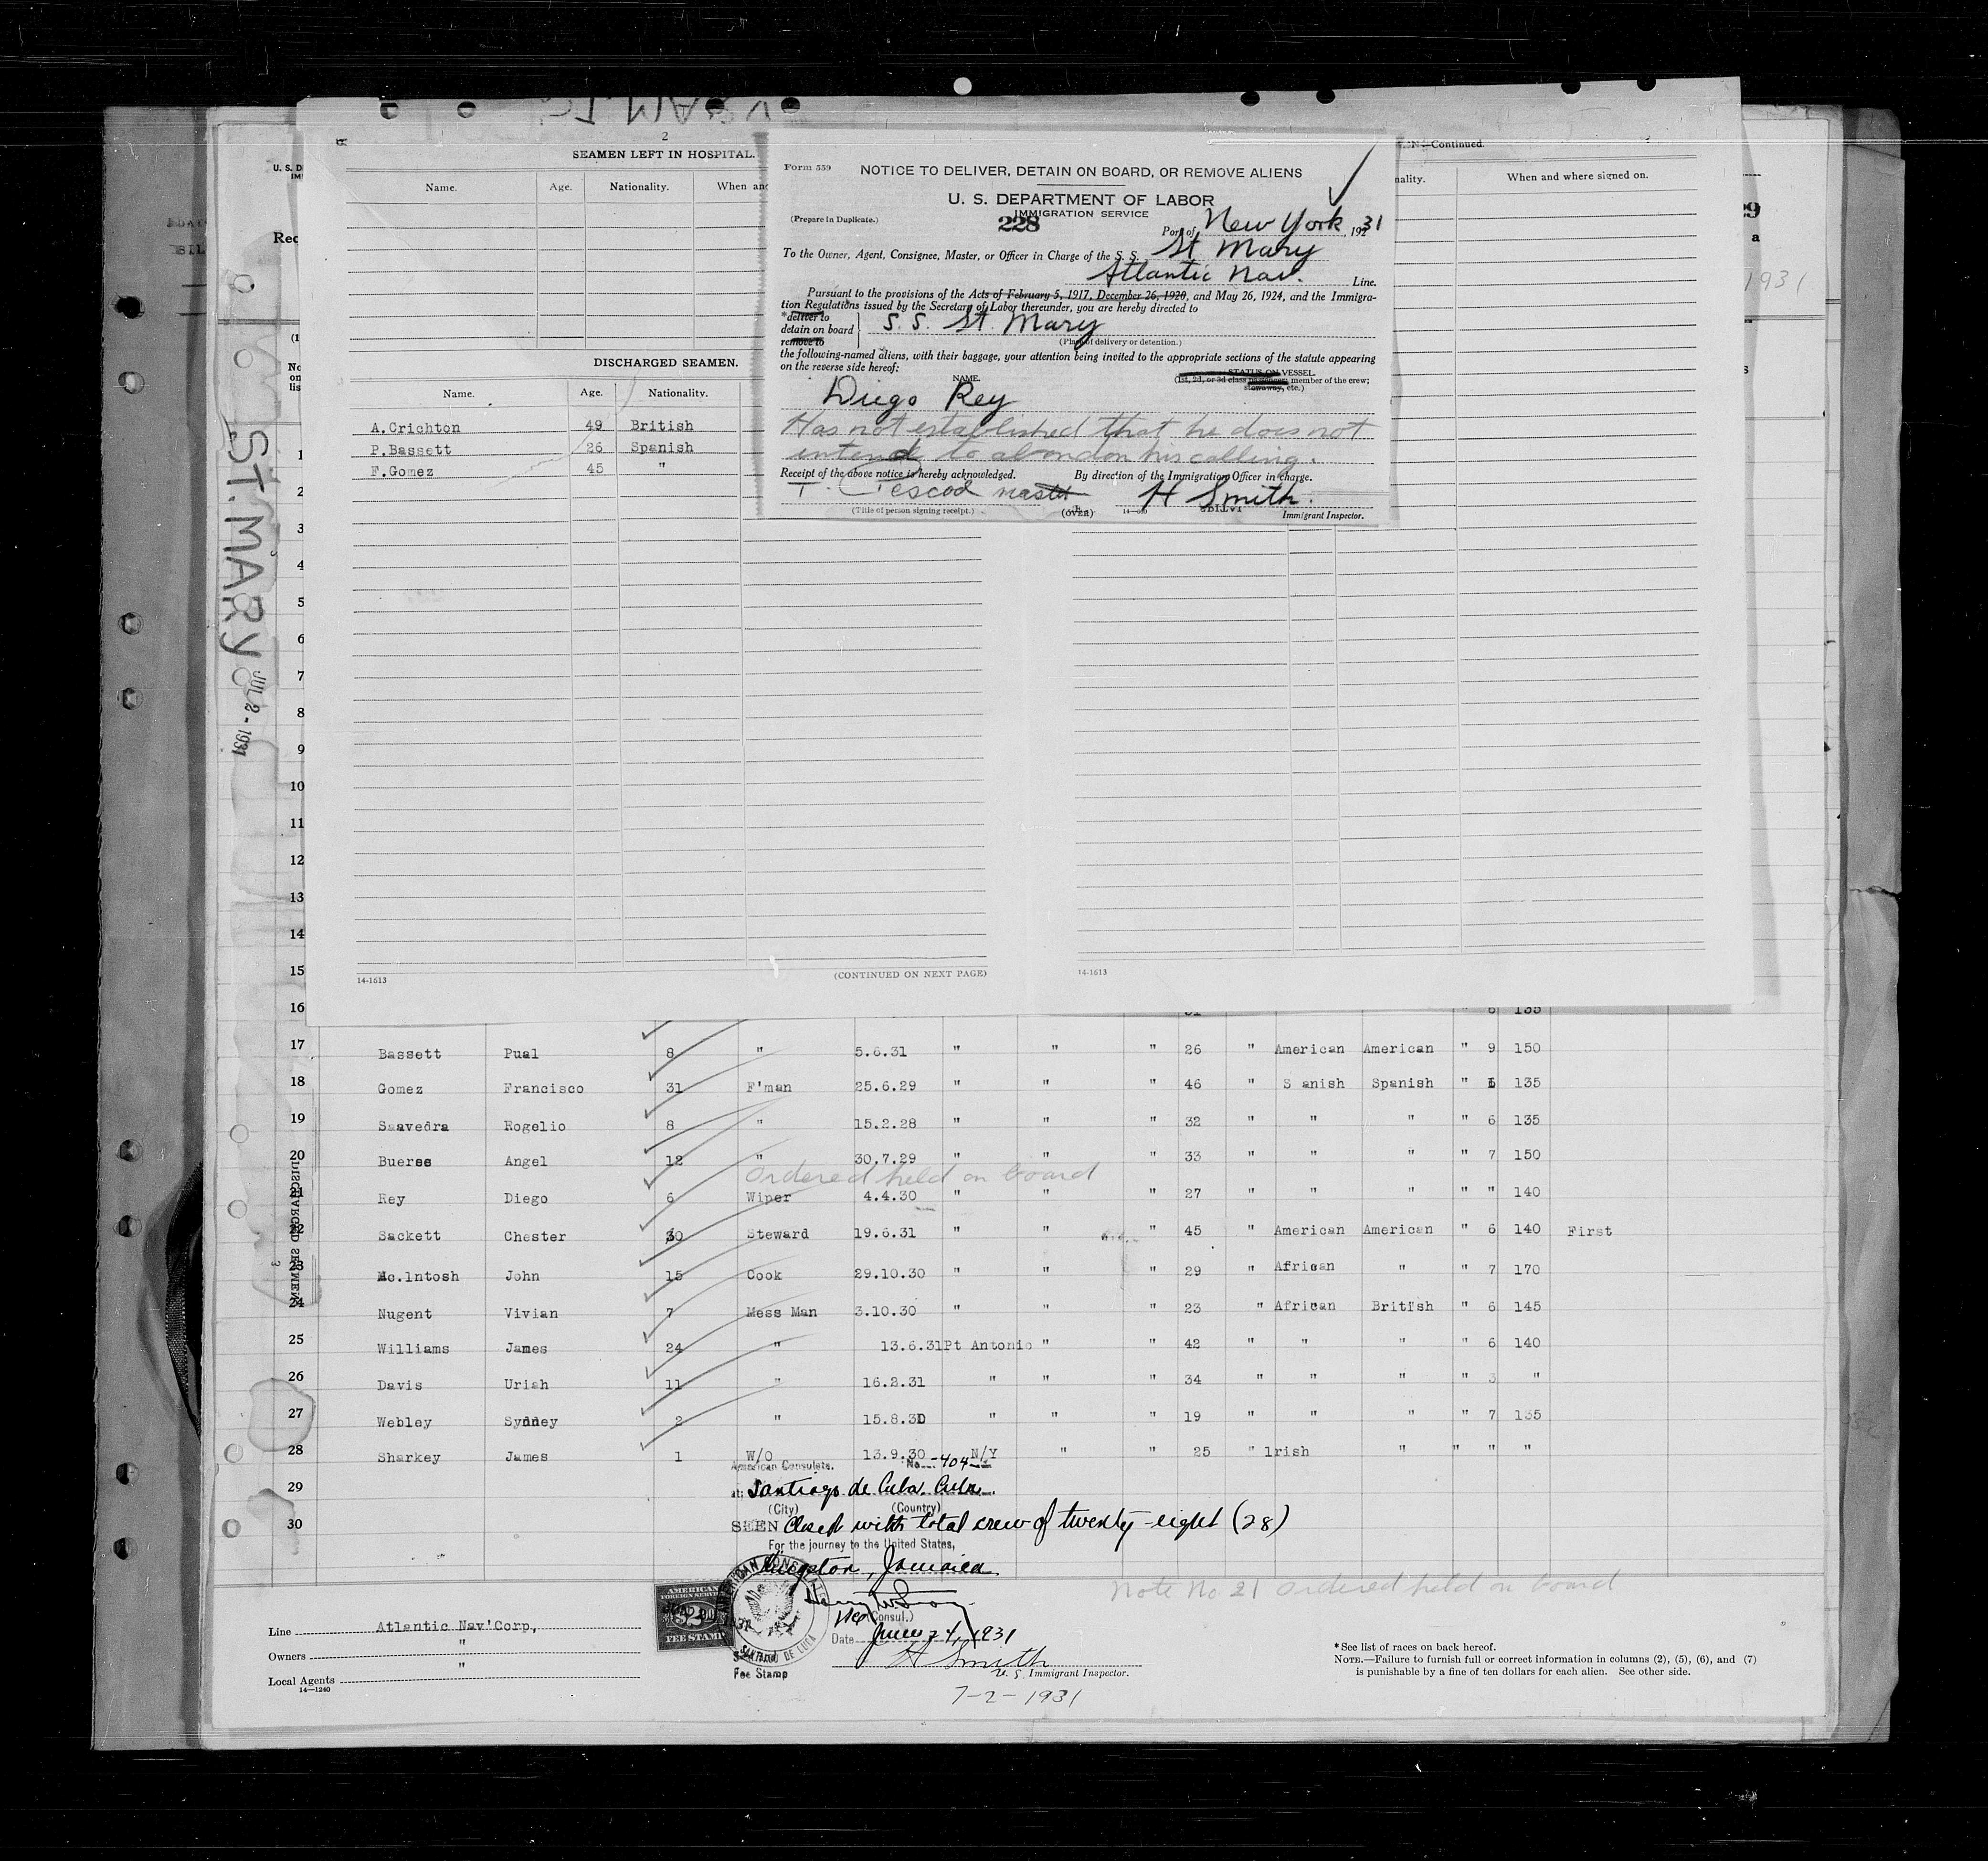 2
SEAMEN LEFT IN HOSPITAL.
Name. Age. Nationality. When and
DISCHARGED SEAMEN.
Name. Age. Nationality.
A.Crichton 49 British
P.Bassett 26 Spanish
F.Gomez 45 "
14-1613
(CONTINUED ON NEXT PAGE)
Form 559
NOTICE TO DELIVER, DETAIN ON BOARD, OR REMOVE ALIENS
U. S. DEPARTMENT OF LABOR
IMMIGRATION SERVICE
(Prepare in Duplicate.)
228
Port of New York, 1931
To the Owner, Agent, Consignee, Master, or Officer in Charge of the S. S. St Mary
Atlantic Nav. Line.
Pursuant to the provisions of the Acts of February 5, 1917, December 26, 1920, and May 26, 1924, and the Immigra-
tion Regulations issued by the Secretary of Labor thereunder, you are hereby directed to
*deliver to
detain on board
remove to
S. S. St. Mary
(Place of delivery or detention.)
the following-named aliens, with their baggage, your attention being invited to the appropriate sections of the statute appearing
on the reverse side hereof:
NAME.
STATUS ON VESSEL
(1st, 2d, or 3d class passenger; member of the crew;
stowaway, etc.)
Diego Rey
Has not established that he does not
intend to abandon his calling.
Receipt of the above notice is hereby acknowledged. By direction of the Immigration Officer in charge.
master H Smith.
(Title of person signing receipt.) (OVER) Immigrant Inspector.
—Continued.
When and where signed on.
14-1613
ST. MARY
JUL 2 - 1931
1931
DISCHARGED SEAMEN
1
2
3
4
5
6
7
8
9
10
11
12
13
14
15
16 6 135
17 Bassett Pual 8 " 5.6.31 " " " 26 " American American " 9 150
18 Gomez Francisco 31 F'man 25.6.29 " " " 46 " S anish Spanish " 135
19 Saavedra Rogelio 8 " 15.2.28 " " " 32 " " " " 6 135
20 Bueres Angel 12 " 30.7.29 " " " 33 " " " " 7 150
Ordered held on board
21 Rey Diego 6 Wiper 4.4.30 " " " 27 " " " " " 140
22 Sackett Chester 30 Steward 19.6.31 " " " 45 " American American " 6 140 First
23 Mc.lntosh John 15 Cook 29.10.30 " " " 29 " African " " 7 170
24 Nugent Vivian 7 Mess Man 3.10.30 " " " 23 " African British " 6 145
25 Williams James 24 " 13.6.31 Pt Antonio " " 42 " " " 6 140
26 Davis Uriah 11 " 16.2.31 " " " 34 " " " " 3 "
27 Webley Sydney 2 " 15.8.30 " " " 19 " " " " 7 135
28 Sharkey James 1 W/O 13.9.30 N/Y " " 25 " lrish " " " "
29
30
American Consulate.
No. -404-
at: Santiago de Cuba, Cuba.
(City) (Country)
SEEN Closed with total crew of twenty-eight (28)
For the journey to the United States,
Kingston, Jamaica
Note No 21 Ordered held on board
(Consul.)
Date June 24, 1931
H Smith
U. S. Immigrant Inspector.
7-2-1931
AMERICAN
FOREIGN SERVICE
FEE STAMP
AMERICAN CONSULATE
SANTIAGO DE CUBA
Fee Stamp
Line Atlantic Nav'Corp,
Owners "
Local Agents "
14—1240
*See list of races on back hereof.
NOTE.—Failure to furnish full or correct information in columns (2), (5), (6), and (7)
is punishable by a fine of ten dollars for each alien. See other side.